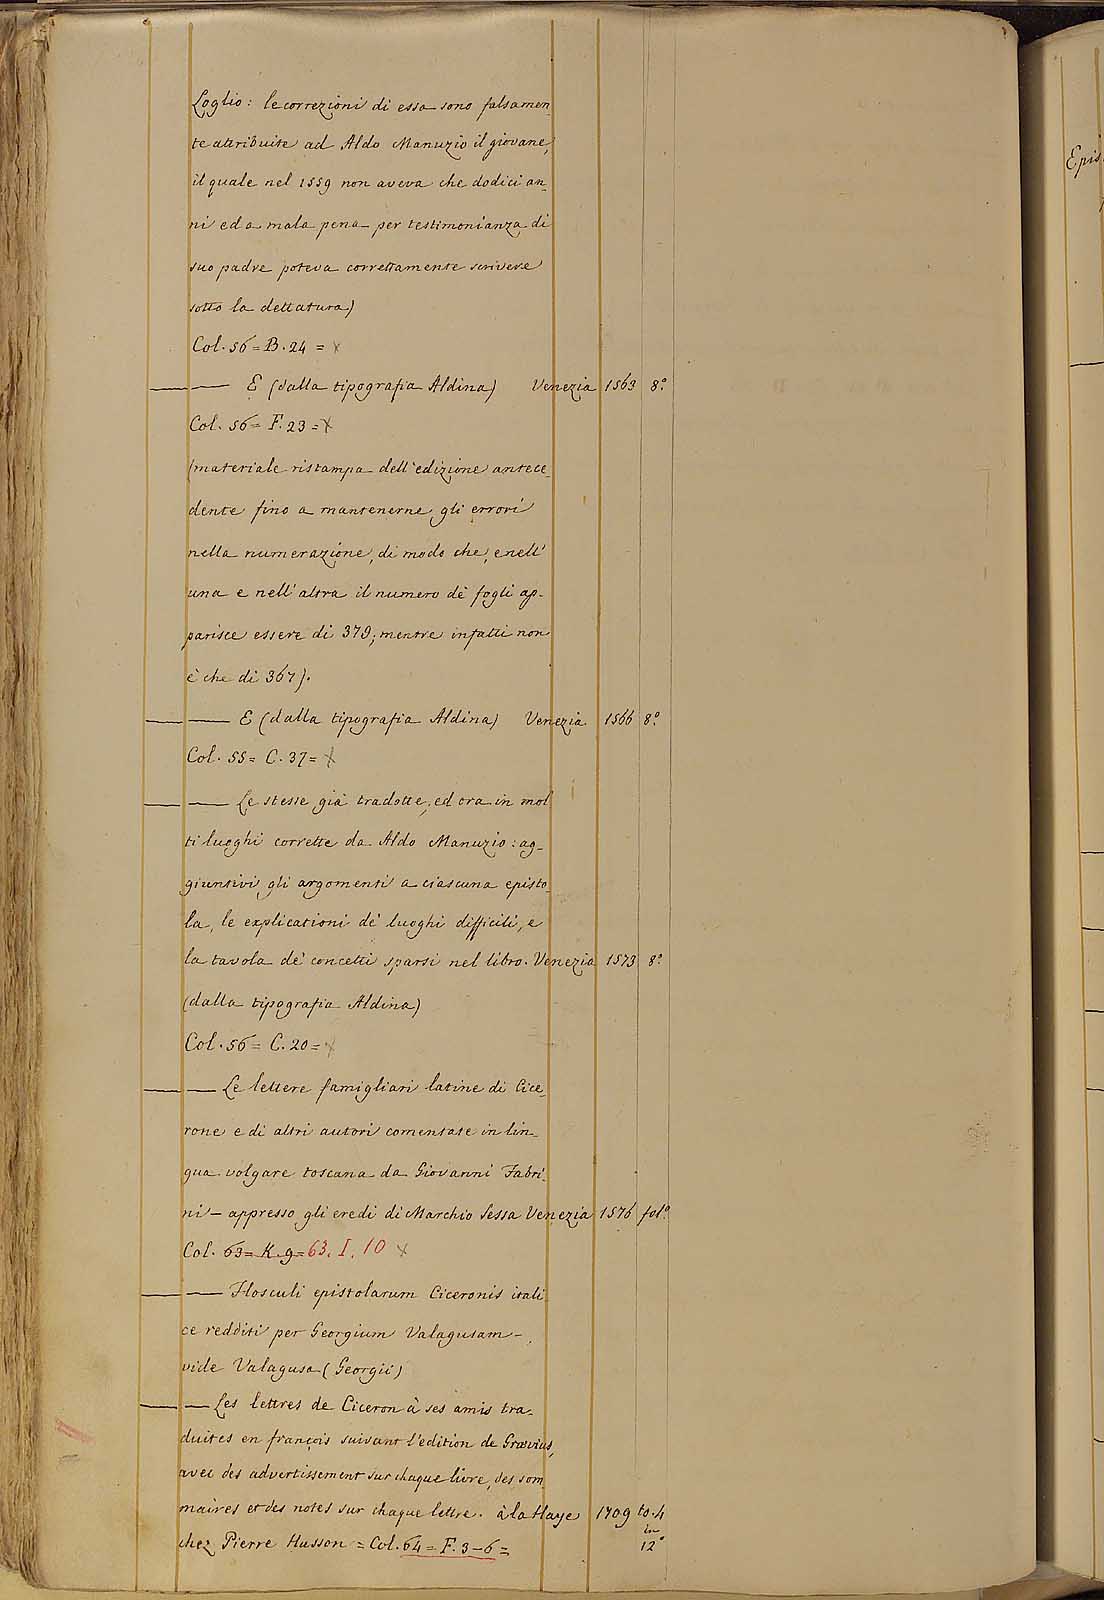 Loglio: le correzioni di essa sono falsamen_
te attribuite ad Aldo Manuzio il giovane,
il quale nel 1559 non aveva che dodici an_
ni ed a mala pena per testimonianza di
suo padre poteva correttamente scrivere
sotto la dettatura)
Col. 56 = B. 24 = x
— — E (dalla tipografia Aldina) Venezia 1563 8.º
Col. 56 = F. 23 = x
(materiale ristampa dell'edizione antece_
dente fino a mantenerne gli errori
nella numerazione, di modo che, e nell'
una e nell'altra il numero de' fogli ap-
parisce essere di 379; mentre infatti non
è che di 367).
— — E (dalla tipografia Aldina) Venezia 1566 8.º
Col. 55 = C. 37 = x
— — Le stesse già tradotte, ed ora in mol
ti luoghi corrette da Aldo Manuzio: ag-
giuntivi gli argomenti a ciascuna episto_
la, le explicationi de' luoghi difficili, e
la tavola de' concetti sparsi nel libro. Venezia 1573 8.º
(dalla tipografia Aldina)
Col. 56 = C. 20 = x
— — Le lettere famigliari latine di Cice_
rone e di altri autori comentate in lin_
gua volgare toscana da Giovanni Fabri_
ni – appresso gli eredi di Marchio Sessa Venezia 1576 fol.º
Col. 63 = K. 9 = 63. I. 10 x
— — Flosculi epistolarum Ciceronis itali_
ce redditi per Georgium Valagusam –
vide Valagusa (Georgii)
— — Les lettres de Ciceron à ses amis tra_
duites en françois suivant l'edition de Grævius,
avec des advertissement sur chaque livre, des som
maires et des notes sur chaque lettre. à la Haye 1709 to. 4
in
chez Pierre Husson = Col. 64 = F. 3 – 6 = 12º
Epis